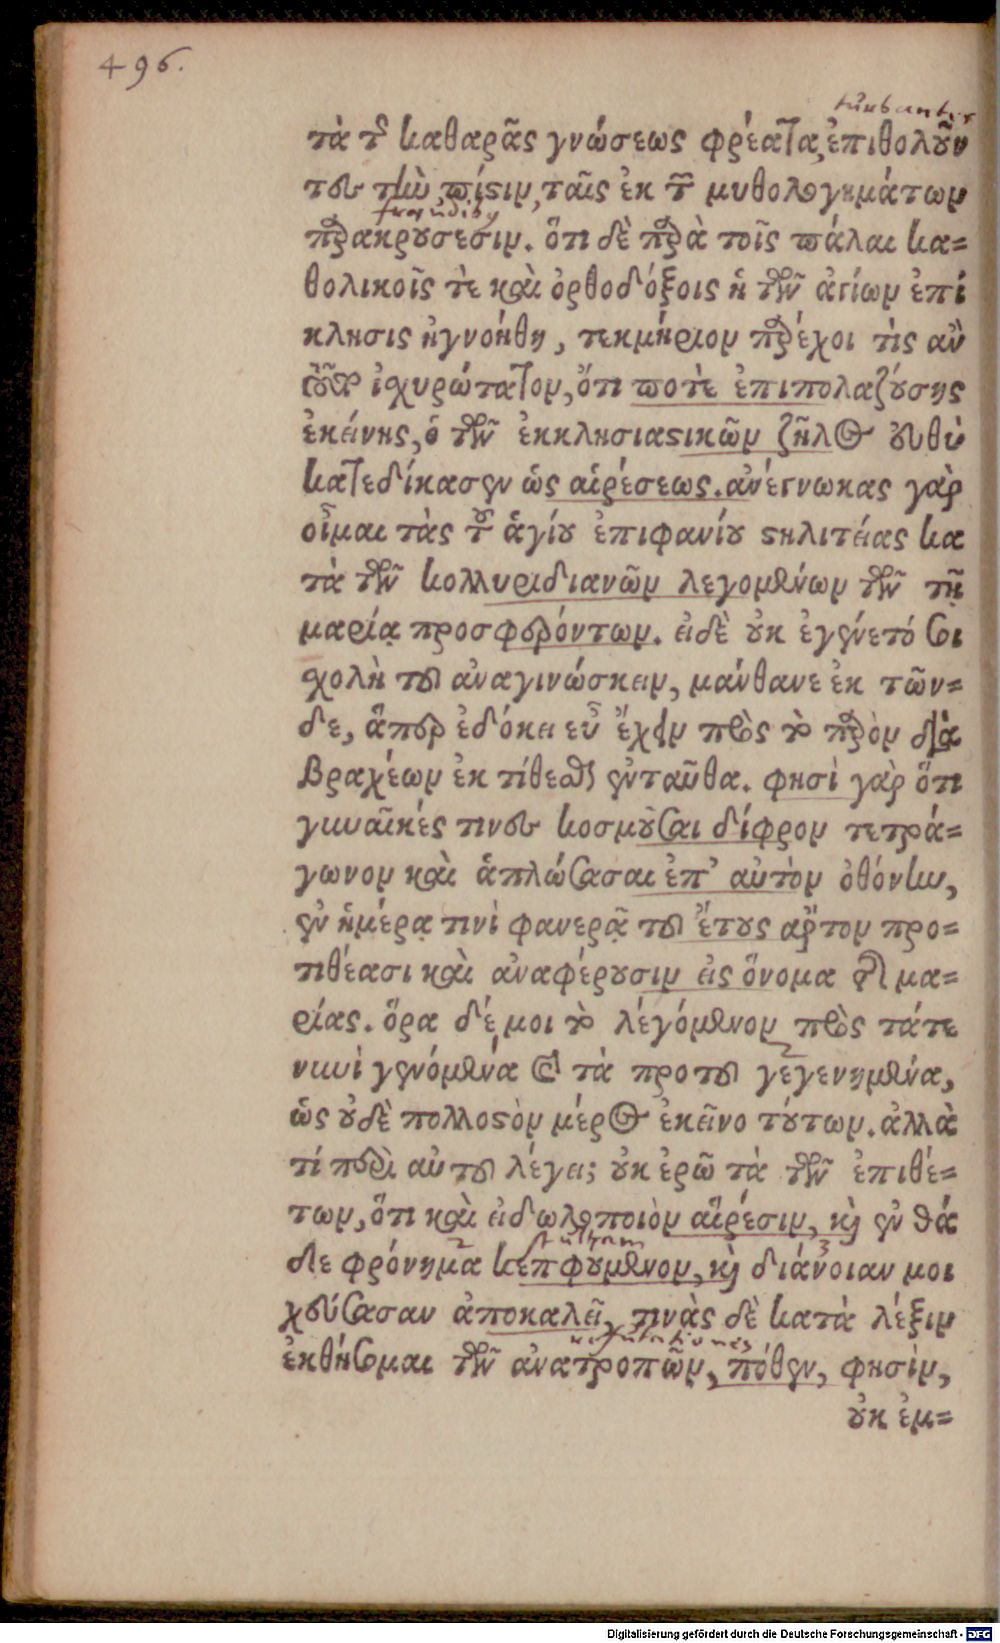 496.
turbantes
τὰ τῆς καθαρᾶς γνώσεως φρέατα, ἐπιθολοῦν
τες τὴν πίστιν, ταῖς ἐκ τῶν μυθολογημάτων
fraudibus
παρακρούσεσιν. ὅτι δὲ παρὰ τοῖς πάλαι κα=
θολικοῖς τὲ καὶ ὀρθοδόξοις ἡ τῶν ἁγίων ἐπί
κλησις ἠγνοήθη, τεκμήριον παρέχοι τὶς ἂν
ἰχυρώτατον, ὅτι ποτὲ ἐπιπολαζούσης
ἐκείνης, ὁ τῶν ἐκκλησιαστικῶν ζῆλος εὐθὺ
κατεδίκασεν ὡς αἱρέσεως. ἀνέγνωκας γὰρ
οἶμαι τὰς τοῦ ἁγίου ἐπιφανίου στηλιτείας κα
τὰ τῶν κολλυριδιανῶν λεγομένων τῶν τῇ
μαρίᾳ προσφερόντων. εἰδὲ οὐκ ἐγένετό σοι
χολὴ τοῦ ἀναγινώσκειν, μάνθανε ἐκ τῶν=
δε, ἅπερ ἐδόκει εὖ ἔχειν πρὸς τὸ παρὸν διὰ
βραχέων ἐκ τίθεσθαι ἐνταῦθα. φησὶ γὰρ ὅτι
γυναῖκές τινες κοσμοῦσαι δίφρον τετρά=
γωνον καὶ ἁπλώσασαι ἐπ' αὐτὸν ὀθόνην,
ἐν ἡμέρᾳ τινὶ φανερᾷ τοῦ ἔτους ἄρτον προ=
τιθέασι καὶ ἀναφέρουσιν εἰς ὄνομα τῆς μα=
ρίας. ὅρα δέ μοι τὸ λεγόμενον πρὸς τάτε
νυνὶ γενόμενα καὶ τὰ προτοῦ γεγενημένα,
ὡς οὐδὲ πολλοστὸν μέρος ἐκεῖνο τούτων. ἀλλὰ
τί περὶ αὐτοῦ λέγει; οὐκ ἐρῶ τὰ τῶν ἐπιθέ=
των, ὅτι καὶ εἰδωλοποιὸν αἵρεσιν, καὶ ἐνθά
stultam
δε φρόνημα κεπφουμενον, καὶ διάνοιαν μοι
χεύσασαν ἀποκαλεῖ, τινὰς δὲ κατὰ λέξιν
refutationes
ἐκθήσομαι τῶν ἀνατροπῶν, πόθεν, φησὶν,
οὐκ ἐμ=
Digitalisierung gefördert durch die Deutsche Forschungsgemeinschaft - DFG